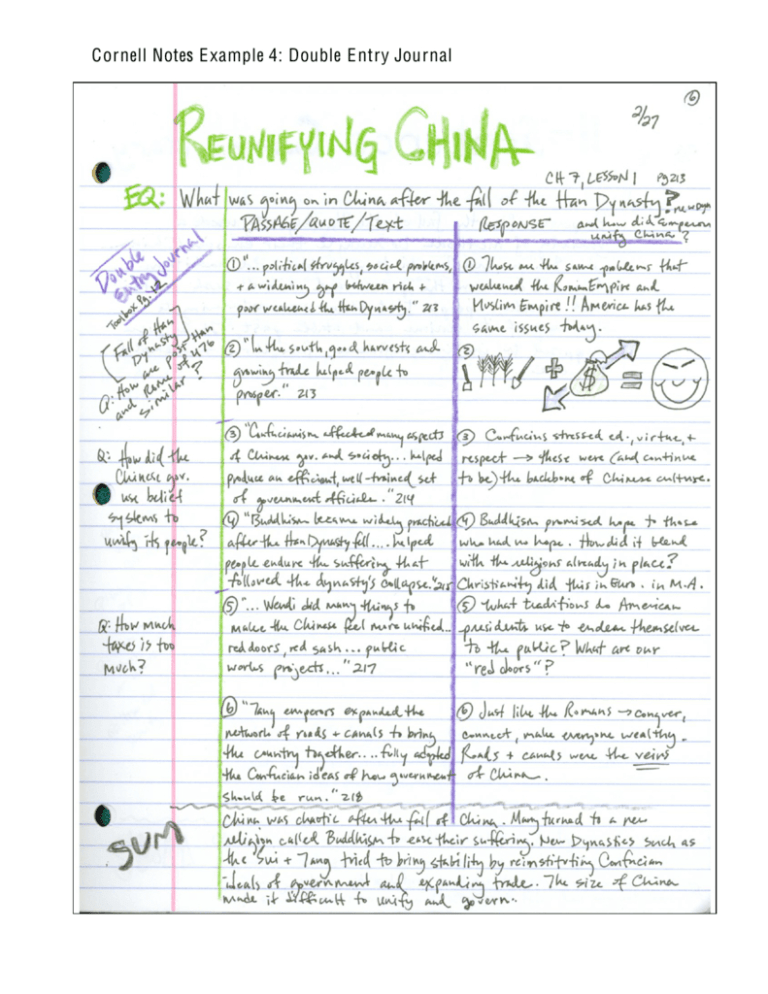 Cornell Notes Example 4: Double Entry Journal
6
2/27
REUNIFYING CHINA
CH 7, LESSON 1 pg 213
EQ: What was going on in China after the fall of the Han Dynasty?
and how did new Dyn Emperors
unify China?
PASSAGE/QUOTE/Text
RESPONSE
Double
Entry Journal
Toolbox Pg. 12
[Fall of Han
Dynasty]
Q: How are post-Han
and Rome of 476
similar?
① "... political struggles, social problems,
+ a widening gap between rich +
poor weakened the Han Dynasty." 213
① These are the same problems that
weakened the Roman Empire and
Muslim Empire!! America has the
same issues today.
② "In the south, good harvests and
growing trade helped people to
prosper." 213
②
+ $ =
Q: How did the
Chinese gov.
use belief
systems to
unify its people?
③ "Confucianism affected many aspects
of Chinese gov. and society... helped
produce an efficient, well-trained set
of government officials." 214
③ Confucius stressed ed., virtue, +
respect → these were (and continue
to be) the backbone of Chinese culture.
④ "Buddhism became widely practiced
after the Han Dynasty fell.... helped
people endure the suffering that
followed the dynasty's collapse." 215
④ Buddhism promised hope to those
who had no hope. How did it blend
with the religions already in place?
Christianity did this in Euro. in M.A.
Q: How much
taxes is too
much?
⑤ "... Wendi did many things to
make the Chinese feel more unified...
red doors, red sash... public
works projects..." 217
⑤ What traditions do American
presidents use to endear themselves
to the public? What are our
"red doors"?
⑥ "Tang emperors expanded the
network of roads + canals to bring
the country together.... fully adopted
the Confucian ideas of how government
should be run." 218
⑥ Just like the Romans → conquer,
connect, make everyone wealthy.
Roads + canals were the veins
of China.
SUM
China was chaotic after the fall of China. Many turned to a new
religion called Buddhism to ease their suffering. New Dynasties such as
the Sui + Tang tried to bring stability by reinstituting Confucian
ideals of government and expanding trade. The size of China
made it difficult to unify and govern.